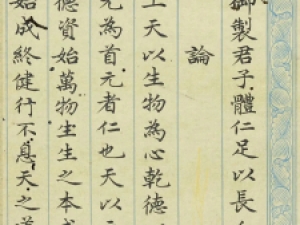 御製君子體仁足以長
論
上天以生物為心乾德
元為首元者仁也天以
德資始萬物生生之本
始成終健行不息天之道